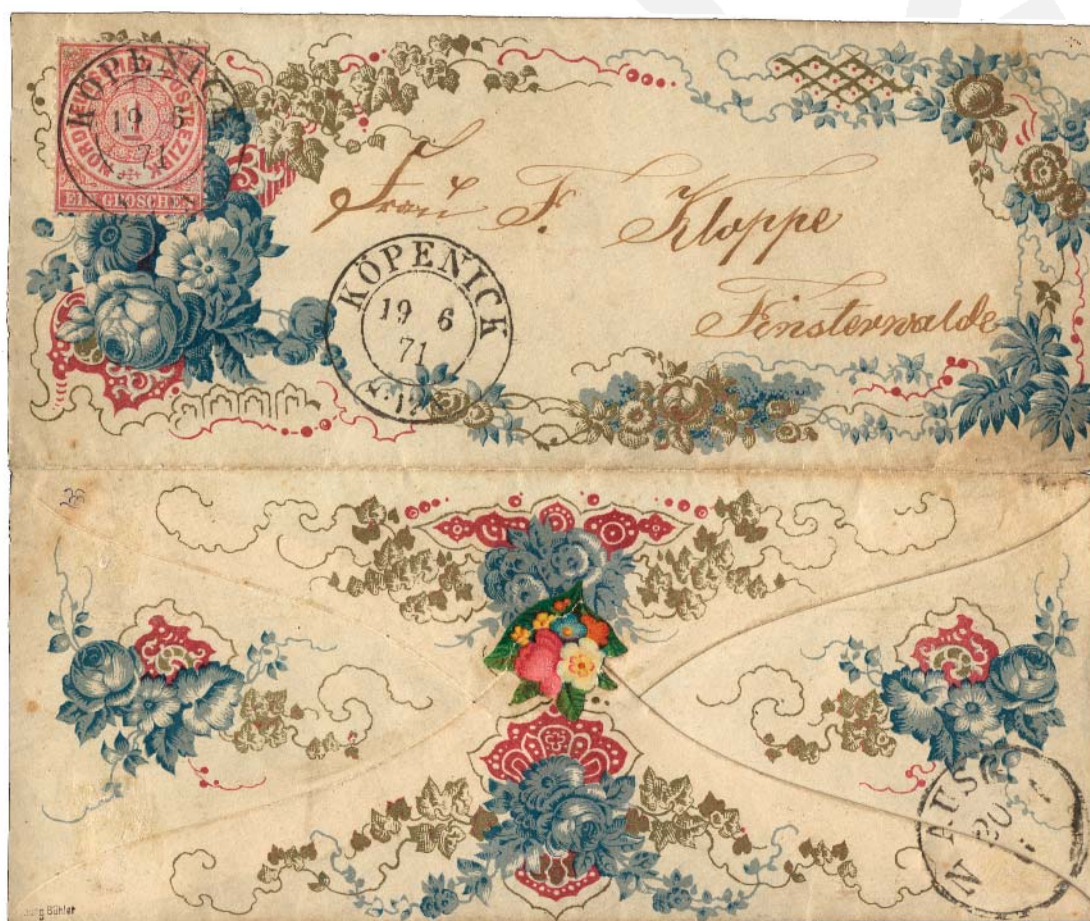 KÖPENICK
19 6
71
NORDDEUTSCHER POSTBEZIRK
1
EIN GROSCHEN
Frau F. Kloppe
Finsterwalde
KÖPENICK
19 6
71
28
AUS
N
Bühler